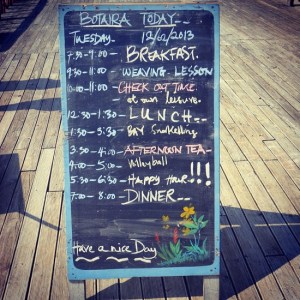 BOTAIRA TODAY
TUESDAY 12/02/2013
7:30-9:00 - BREAKFAST.
9:30-11:00 - WEAVING LESSON
10:00-11:00 - CHECK OUT TIME
at own leisure.
12:30-1:30 - LUNCH
1:30-5:30 - BAY Snorkelling
3:30-4:00 - AFTERNOON TEA
4:00-5:00 - Volleyball
5:30-6:30 - HAPPY HOUR!!!
7:00-8:00 - DINNER
Have a nice Day